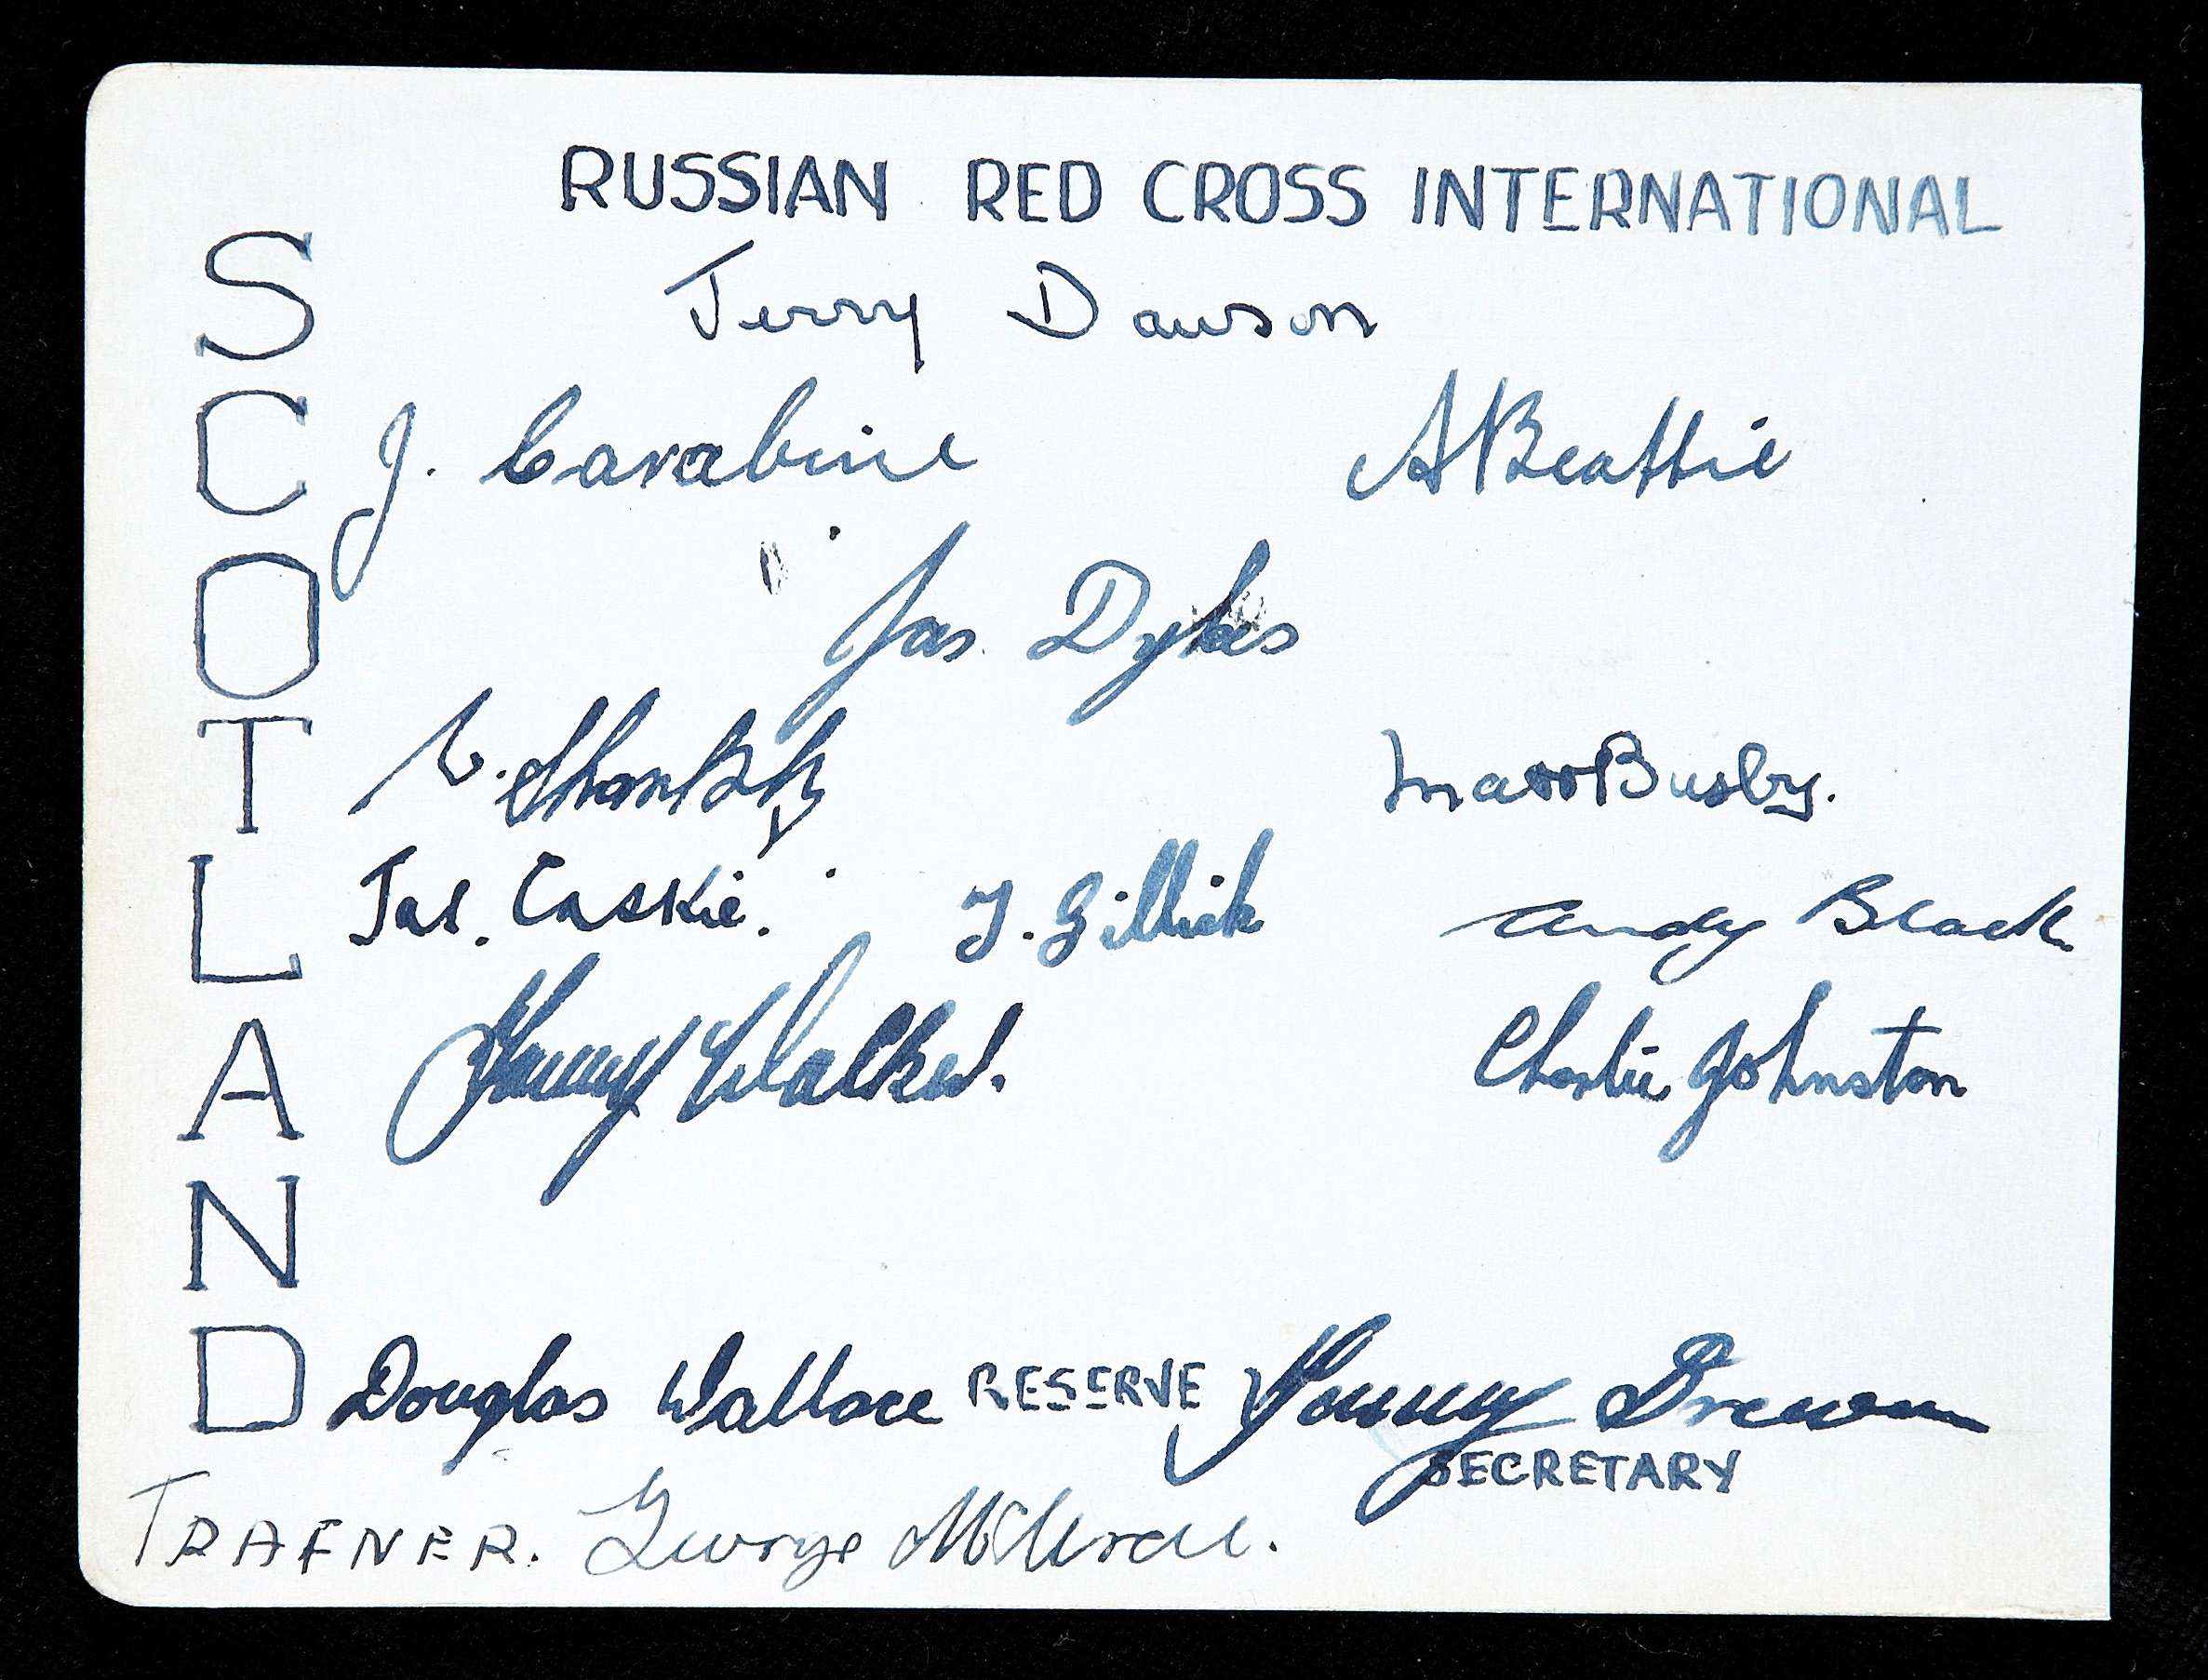 RUSSIAN RED CROSS INTERNATIONAL
SCOTLAND
Jerry Dawson
J. Carabine
A Beattie
Jas. Dykes
W. Shankly
Matt Busby.
Jas. Caskie.
T. Gillick
Andy Black.
Tommy Walker.
Charlie Johnston
Douglas Wallace RESERVE
SECRETARY
TRAINER. George